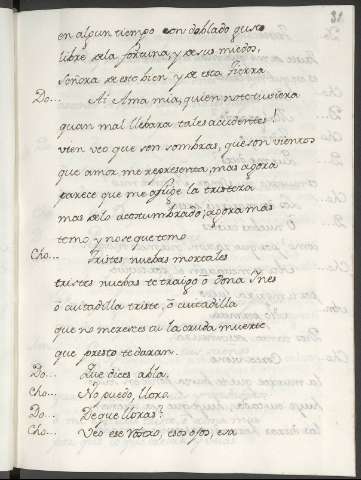 31
en algun tiempo con doblado gusto
libre de la fortuna, y de sus miedos,
señora de este bien y de esta tierra
Do... Ai Ama mia, quien no te tuviera
quan mal llebara tales accidentes!
vien veo que son sombras, que son vientos
que amor me representa, mas agora
parece que me aflige la tristeza
mas de lo acostumbrado; agora mas
temo y no se que temo
Cho... Tristes nuebas mortales
tristes nuebas te traigo ò Dona Ines
ò cuitadilla triste, ò cuitadilla
que no mereces tu la cruda muerte
que presto te daran.
Do... Que dices abla.
Cho... No puedo, lloro.
Do... De que lloras?
Cho... Veo ese rostro, esos ojos, esa